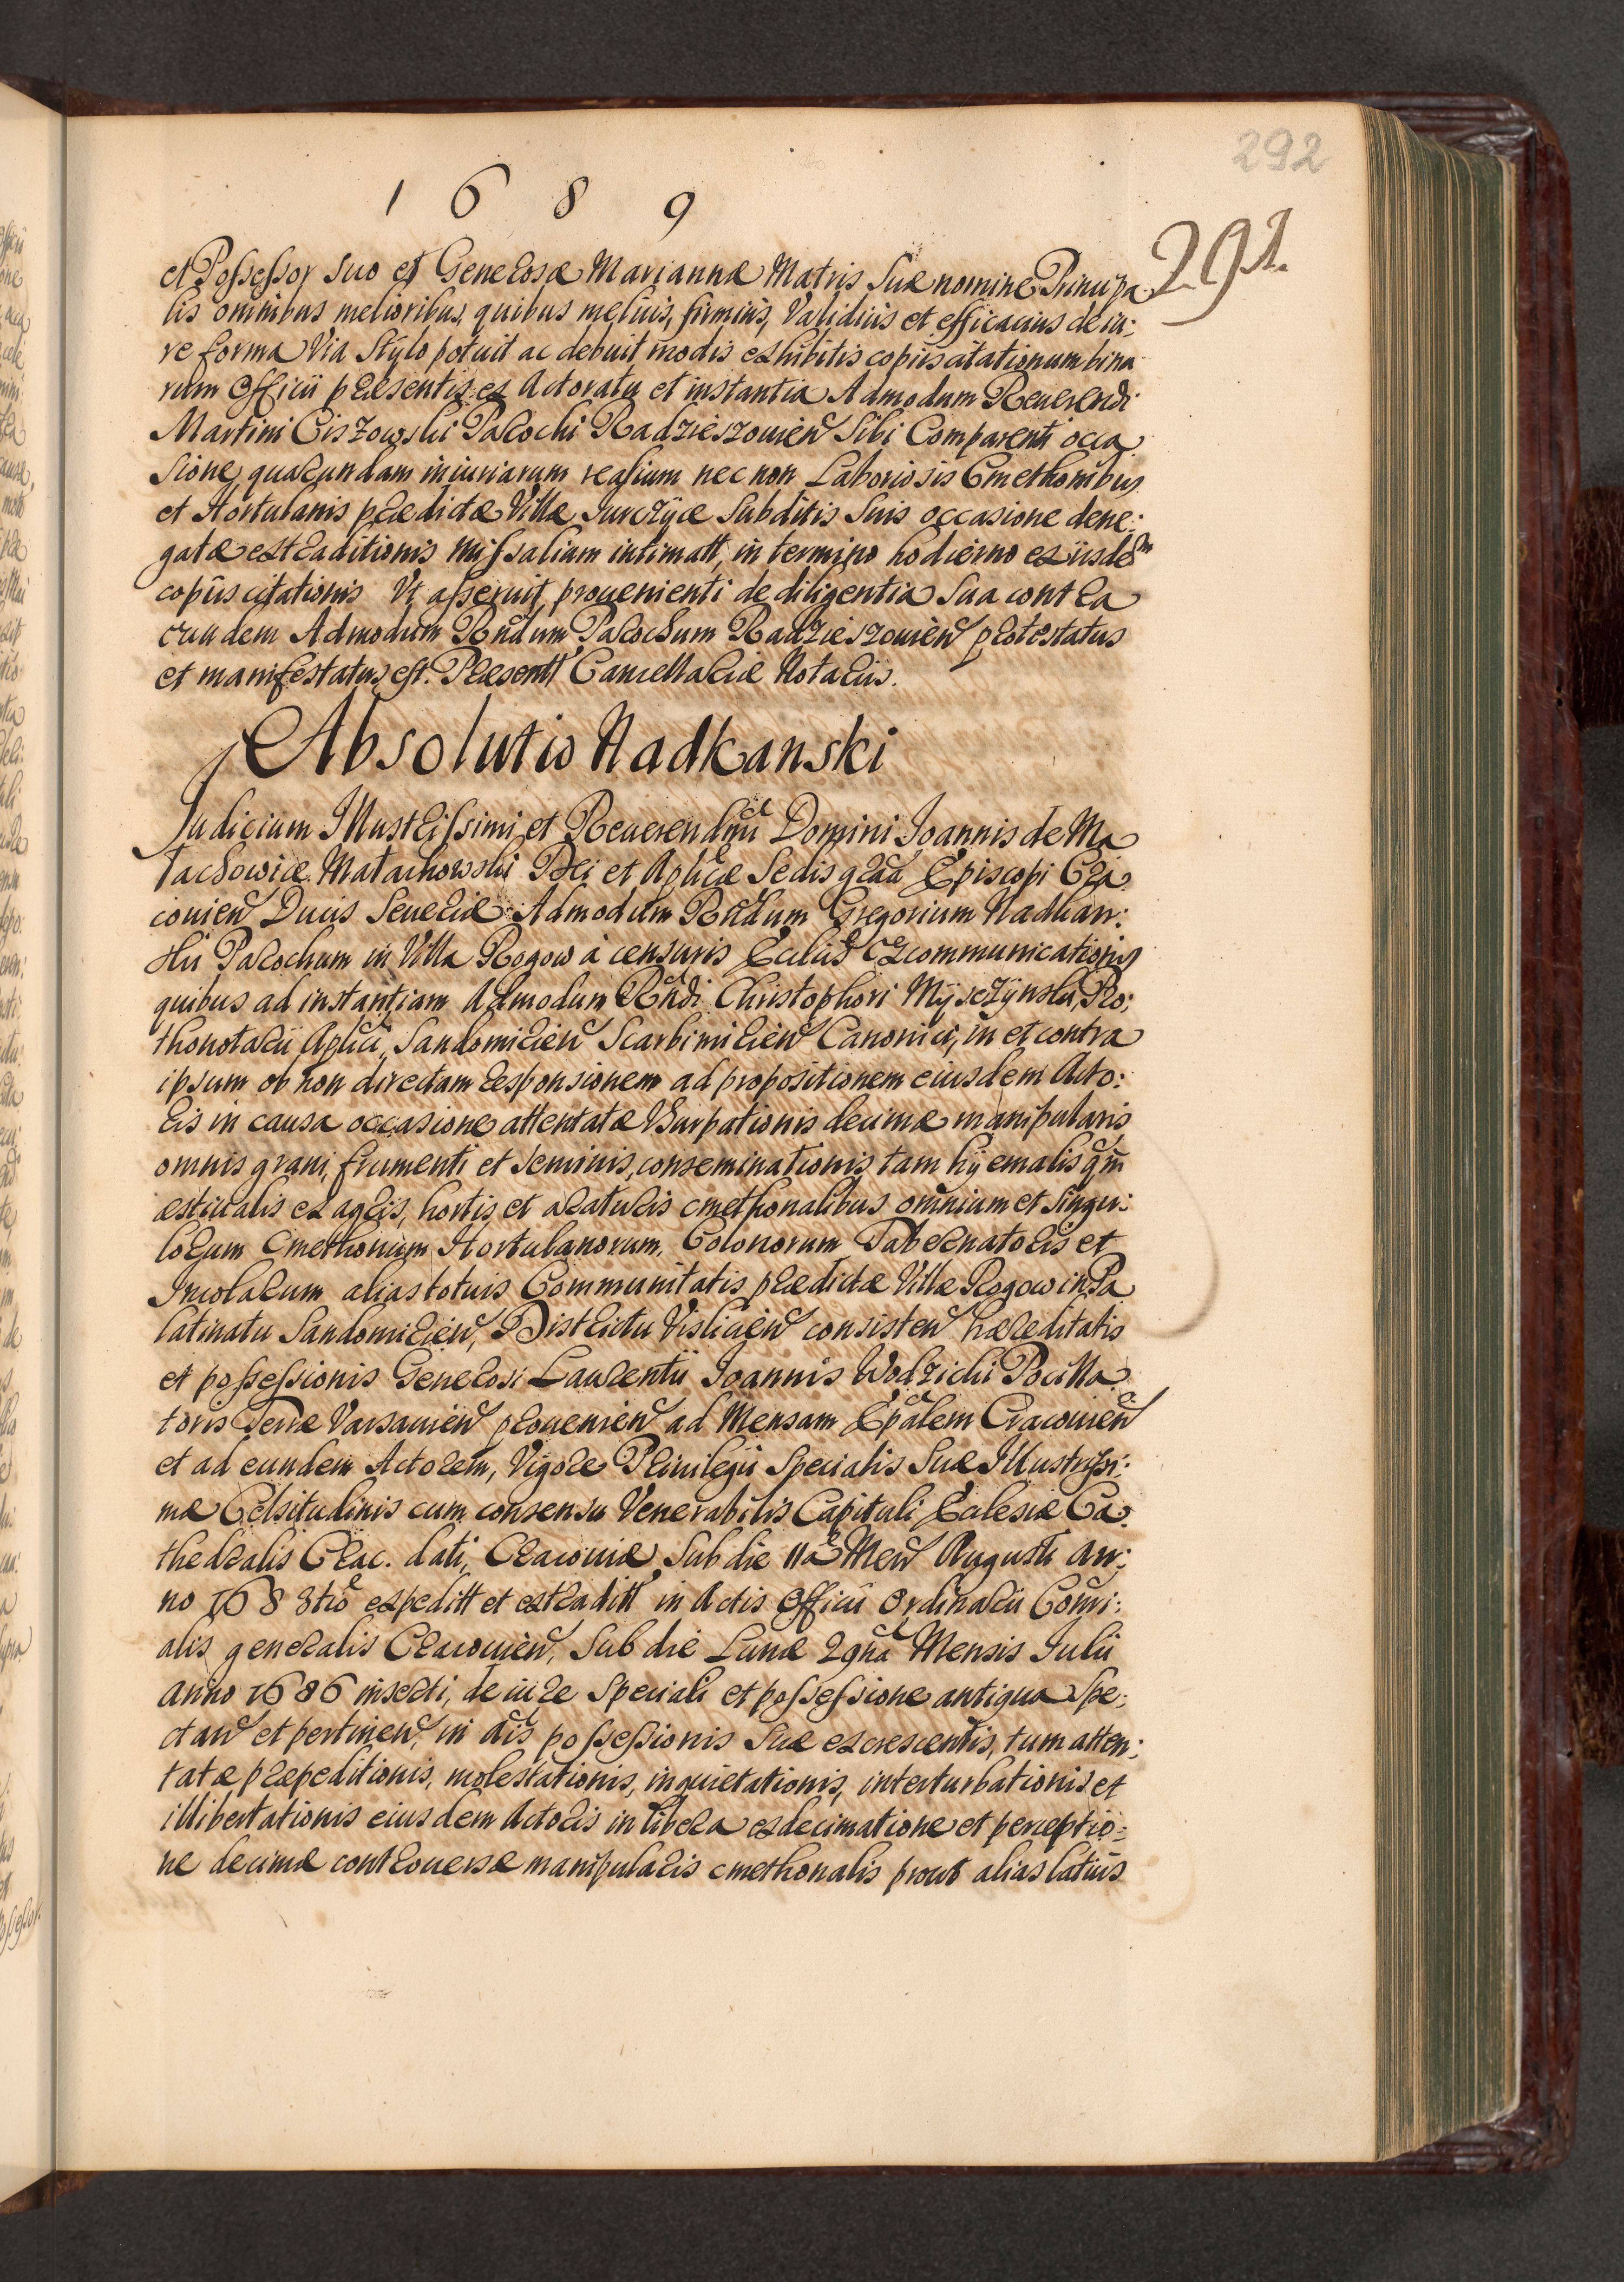 292
1 6 8 9
291.
et Possessor suo et Generosæ Mariannæ Matris suæ nomine Principa
lis omnibus melioribus, quibus melius, firmius, validius et efficacius de iu:
re forma via stylo potuit ac debuit modis exhibitis copiis citationum bina
rum Officii præsentis ex Actoratu et instantia Admodum Reuerendi
Martini Ciszowski Parochi Radzieszouien sibi Comparenti occa
sione quarundam iniuriarum realium nec non Laboriosis Cmethonibus
et Hortulanis prædictæ Villæ Jurczyce subditis suis occasione dene:
gatæ extraditionis missalium intimatt, in termino hodierno ex iisdem
copiis citationis Vt asseruit prouenienti de diligentia sua contra
eundem Admodum Rndum Parochum Radzieszouien protestatus
et manifestatus est. Præsentt Cancellariæ Notariis.
Absolutio Nadkanski
Judicium Illustrissimi et Reuerendmi Domini Joannis de Ma
łachowice Małachowski Dei et Aplicæ Sedis gratia Episcopi Cra
couien Ducis Seueriæ Admodum Rndum Gregorium Nadkan:
ski Parochum in Villa Rogow à censuris Ecclis excommunicationis
quibus ad instantiam Admodum Rndi Christophori Myszczynski, Pro:
thonotarii Aplici, Sandomirien Scarbimirien Canonici, in et contra
ipsum ob non directam responsionem ad propositionem eiusdem Acto:
ris in causa occasione attentatæ Vsurpationis decimæ manipularis
omnis grani, frumenti et seminis, conseminationis tam hyemalis qm
æstiualis ex agris, hortis et araturis cmethonalibus omnium et singu:
lorum Cmethonum, Hortulanorum, Colonorum Tabernatoris et
Incolarum alias totius Communitatis prædictæ Villæ Rogow in Pa
latinatu Sandomirien, Districtu Vislicien consisten hæreditatis
et possessionis Generosi Laurentii Joannis Wodzicki Pocilla
toris Terræ Varsauien prouenien ad Mensam Epalem Cracouien
et ad eundem Actorem, Vigore Priuilegii specialis suæ Illustrissi:
mæ Celsitudinis cum consensu Venerabilis Capituli Ecclesiæ Ca
thedralis Crac. dati, Cracouiæ, sub die 11a Men Augusti an:
no 168 3tio expeditt et extraditt in Actis Officii Ordinarii Consi:
alis generalis Cracouien, sub die Lunæ 29na Mensis Julii
anno 1686 inserti, de iure speciali et possessione antiqua spe:
ctan et pertinen, in dis possessionis suæ excrescentis, tum atten:
tatæ præpeditionis, molestationis, inquietationis, interturbationis et
illibertationis eiusdem Actoris in libera exdecimatione et perceptio:
ne decimæ controuersæ manipularis cmethonalis prout alias latius